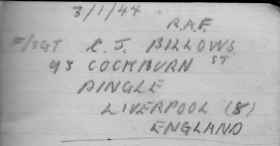 3/1/44
R.A.F.
F/SGT R. J. BILLOWS
43 COCKBURN ST
DINGLE
LIVERPOOL (8)
ENGLAND